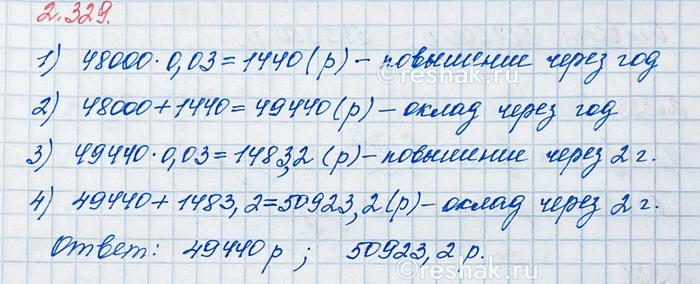 2.329.
1) 48000·0,03=1440(р)-повышение через год
2) 48000+1440=49440(р)-оклад через год
3) 49440·0,03=1483,2(р)-повышение через 2 г.
4) 49440+1483,2=50923,2(р)-оклад через 2 г.
Ответ: 49440р; 50923,2 р.
©reshak.ru